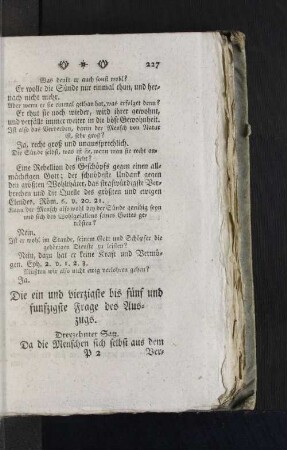 227
Was denkt er auch sonst wohl?
Er wolle die Sünde nur einmal thun, und her-
nach nicht mehr.
Aber wenn er sie einmal gethan hat, was erfolget denn?
Er thut sie noch wieder, wird ihrer gewohnt,
und verfällt immer weiter in die böse Gewohnheit.
Ist also das Verderben, darin der Mensch von Natur
ist, sehr groß?
Ja, recht groß und unaussprechlich.
Die Sünde selbst, was ist sie, wenn man sie recht an-
siehet?
Eine Rebellion des Geschöpfs gegen einen all-
mächtigen Gott; der schnödeste Undank gegen
den größten Wohlthäter, das straswürdigste Ver-
brechen und die Quelle des größten und ewigen
Elendes. Röm. 6. v. 20. 21.
Kann der Mensch also wohl bey der Sünde geruhig seyn
und sich des Wohlgefallens seines Gottes ge-
trösten?
Nein.
Ist er wohl im Stande, seinem Gott und Schöpfer die
gehörigen Dienste zu leisten?
Nein, dazu hat er keine Kraft und Vermö-
gen. Eph. 2. v. 1. 2. 3.
Müßten wir also nicht ewig verlohren gehen?
Ja.
Die ein und vierzigste bis fünf und
funfzigste Frage des Aus-
zugs.
Dreyzehnter Satz.
Da die Menschen sich selbst aus dem
P 2 Ver-